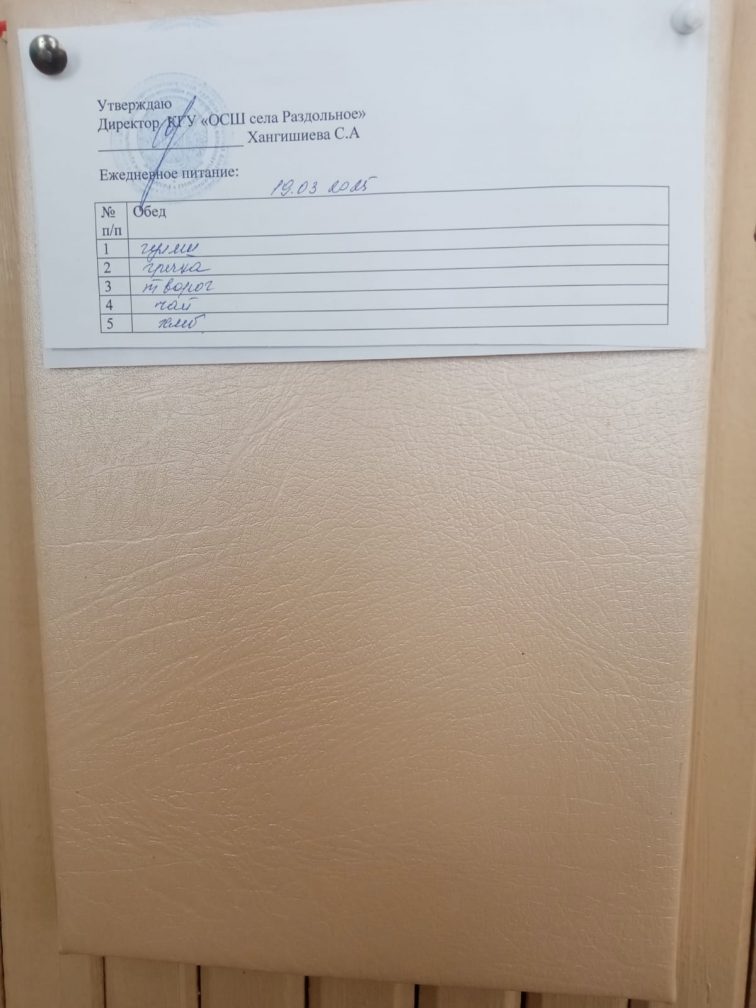 Утверждаю
Директор КГУ «ОСШ села Раздольное»
Хангишиева С.А
Ежедневное питание:
19.03 2025
№ п/п Обед
1 гуляш
2 гречка
3 творог
4 чай
5 хлеб